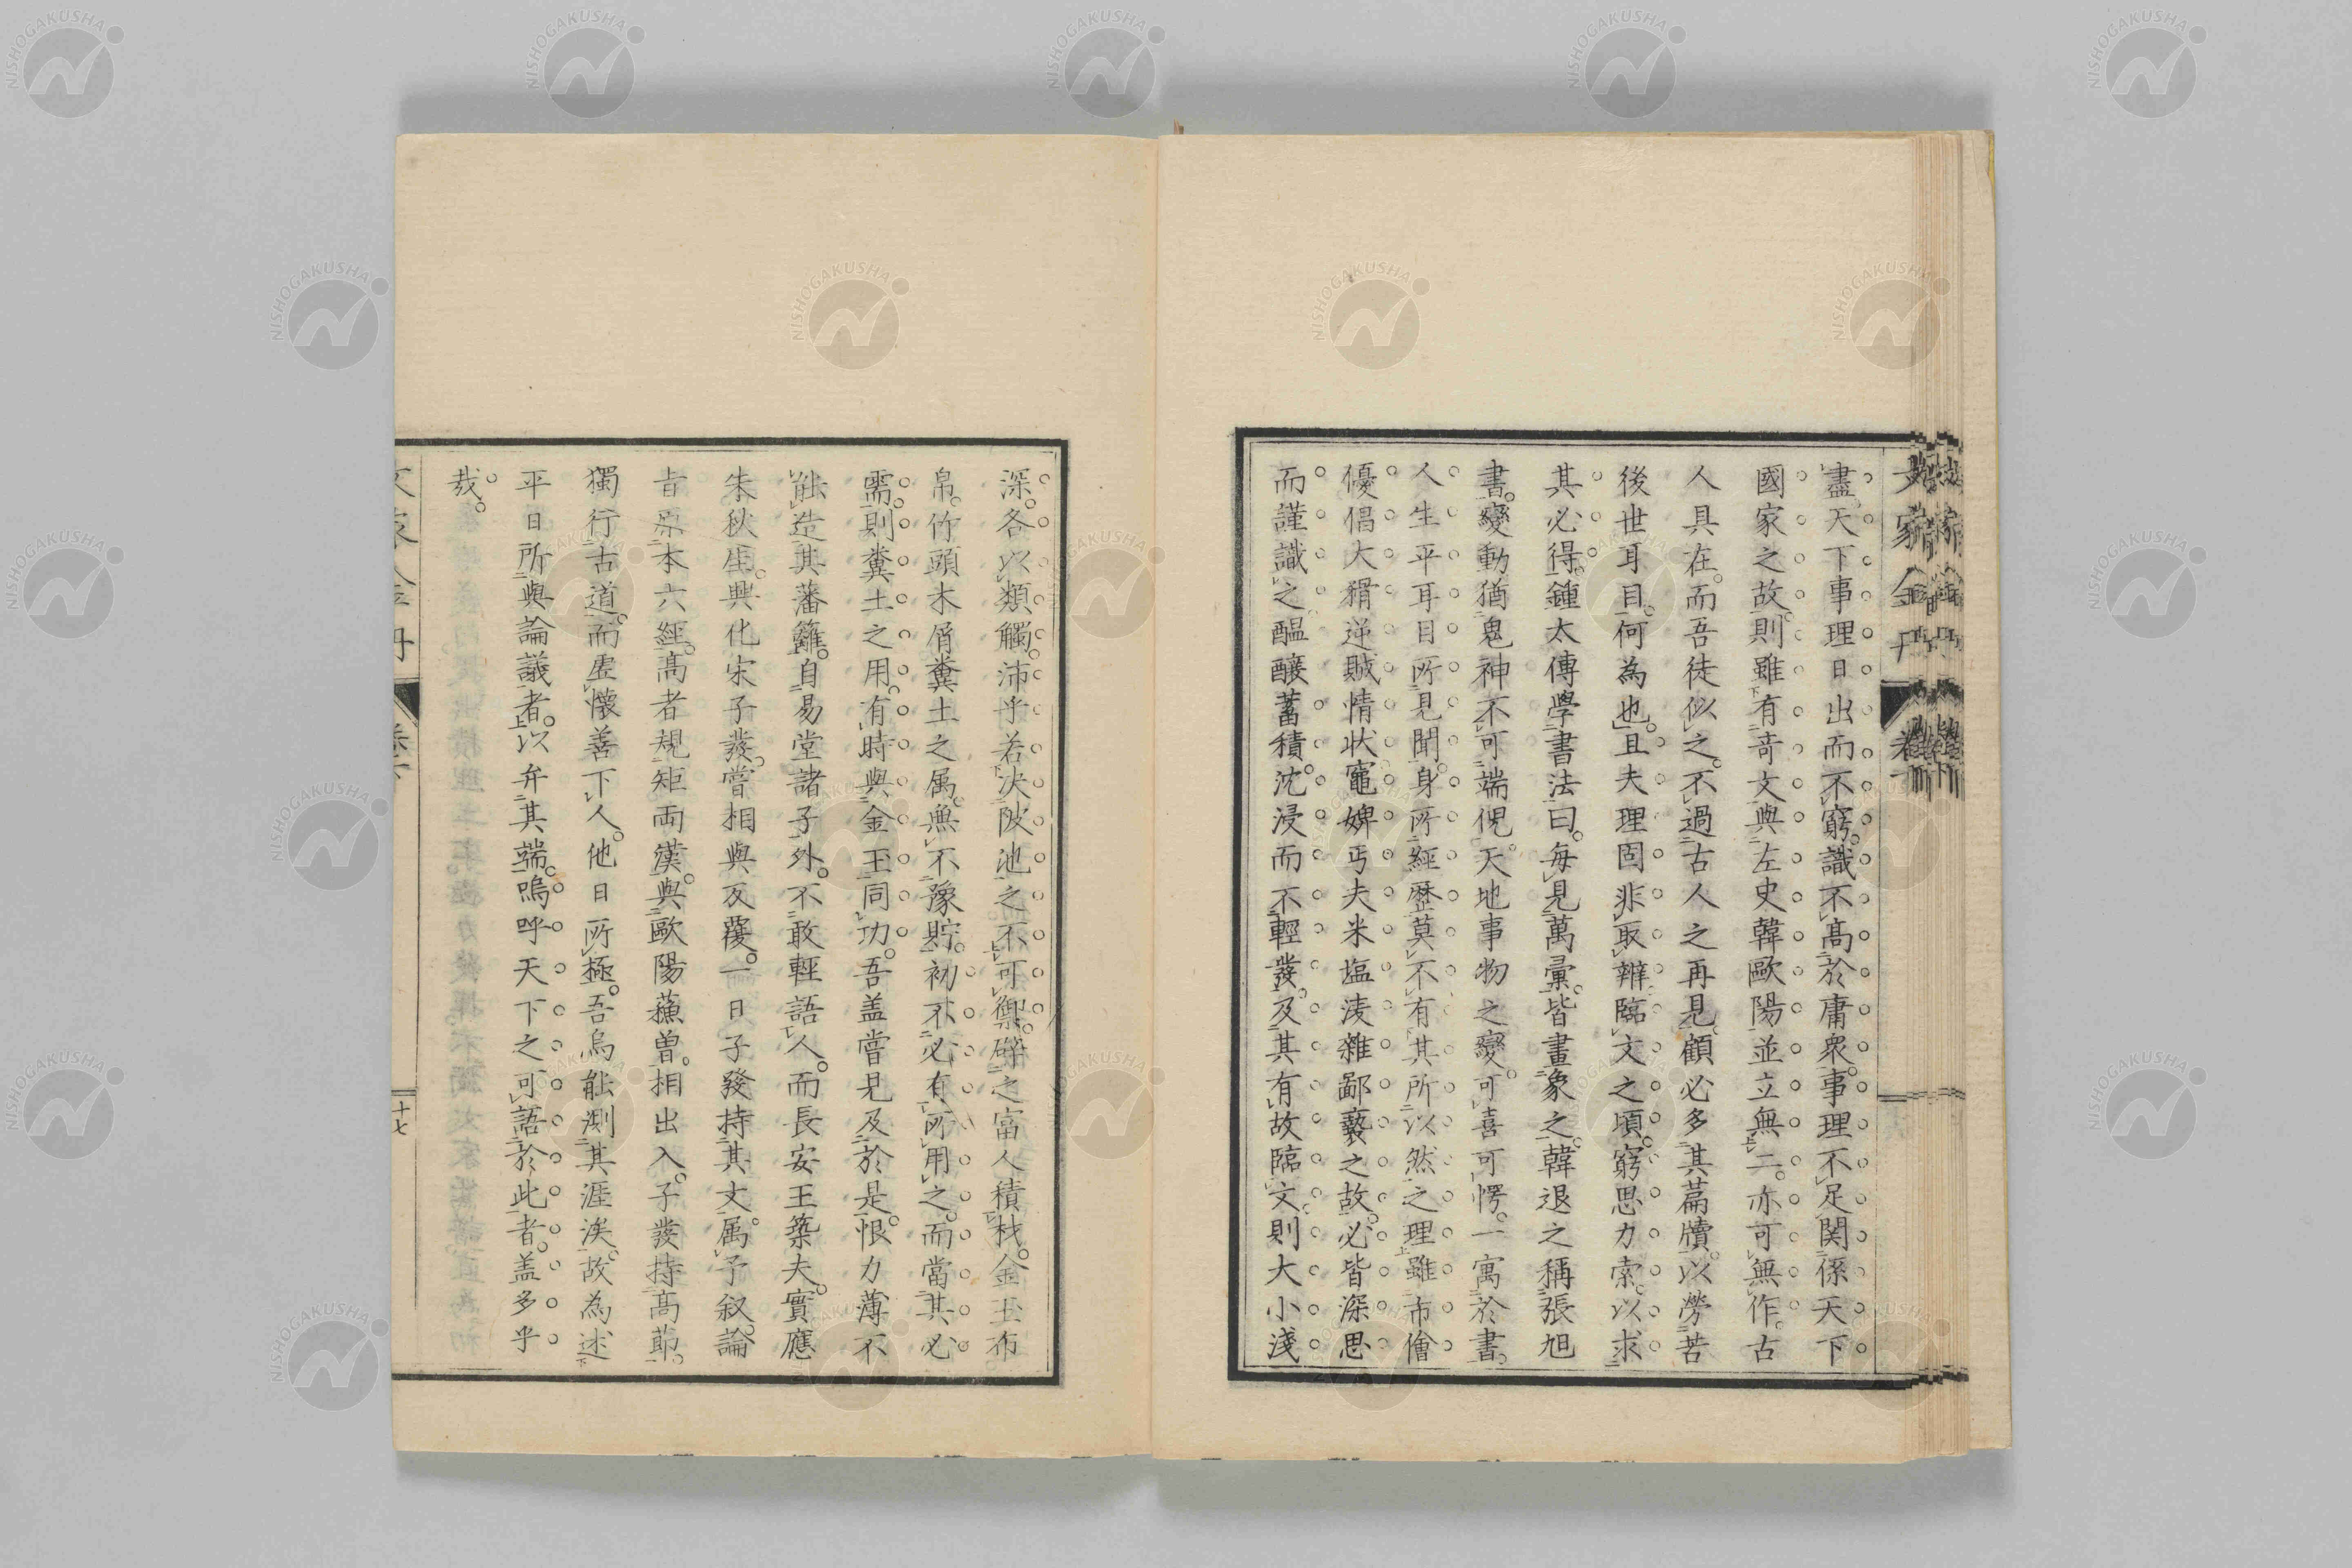 盡天下事理日出而不窮識不高於庸衆事理不足関係天下
國家之故則雖有奇文與左史韓歐陽並立無二亦可無作古
人具在而吾徒似之不過古人之再見顧必多其篇牘以勞苦
後世耳目何為也且夫理固非取辦臨文之頃窮思力索以求
其必得鍾太傳學書法曰每見萬彙皆畫象之韓退之稱張旭
書變動猶鬼神不可端倪天地事物之變可喜可愕一寓於書
人生平耳目所見聞身所經歴莫不有其所以然之理雖市儈
優倡大猾逆賊情狀竈婢丐夫米塩淩雜鄙褻之故必皆深思
而謹識之醞釀蓄積沈浸而不輕發及其有故臨文則大小淺
深各以類觸沛乎若決陂池之不可禦譬之富人積材金玉布
帛竹頭木屑糞土之属無不豫貯初不必有所用之而當其必
需則糞土之用有時與金玉同功吾盖嘗見及於是恨力薄不
能造其藩籬自易堂諸子外不敢輕語人而長安王築夫寶應
朱秋厓興化宋子發嘗相與反覆一日子發持其文属予叙論
旨原本六經高者規矩両漢與歐陽蘓曾相出入子發持高節
獨行古道而虚懐善下人他日所極吾烏能測其涯涘故為述
平日所與論議者以弁其端嗚呼天下之可語於此者盖多乎
哉
文家金丹
十七
NISHOGAKUSHA